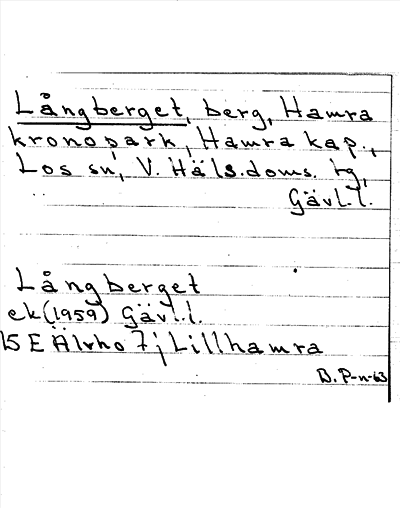 Långberget, berg, Hamra
kronopark, Hamra kap.,
Los sn, V. Häls.doms. tg,
Gävl.l.
Långberget
ek(1959) Gävl.l.
15 E Älvho 7j Lillhamra
B. P-n-63